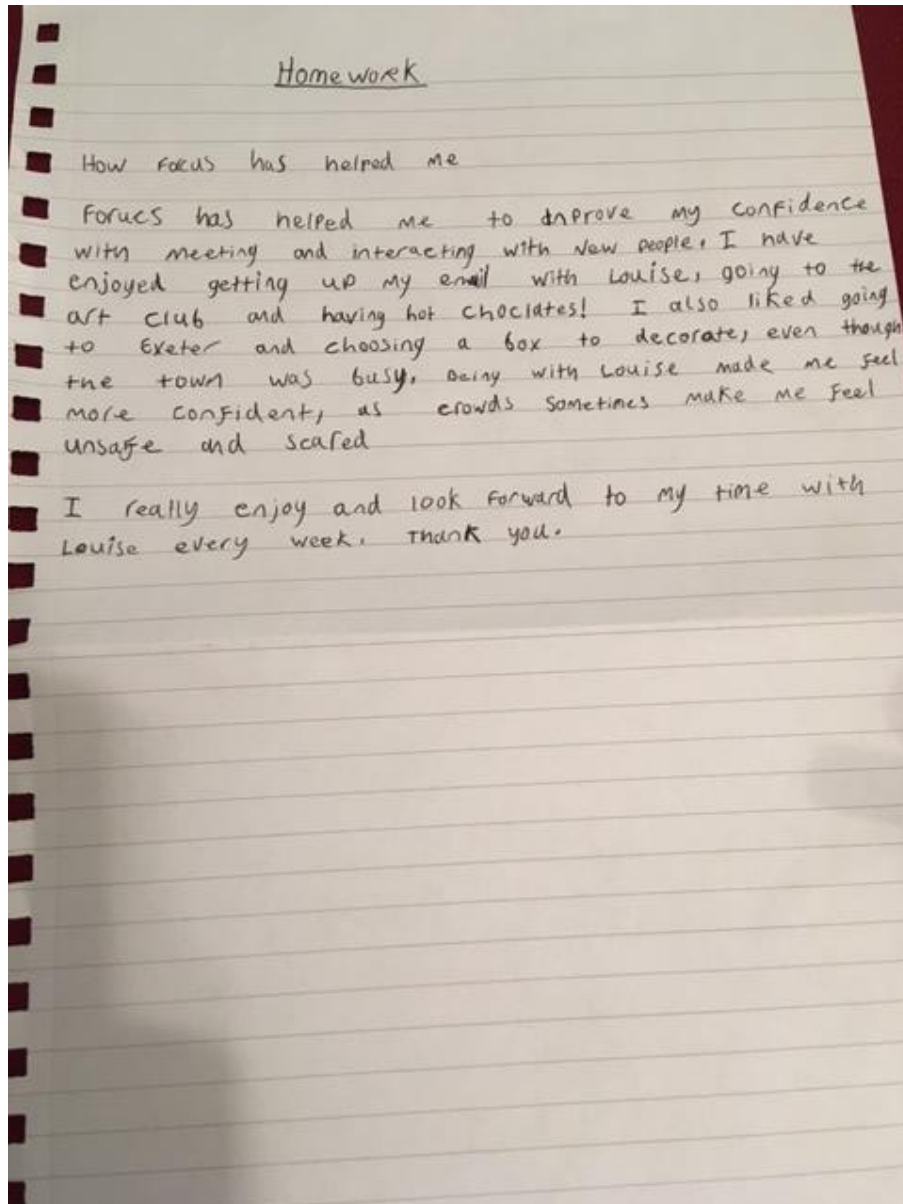 Homework
How Focus has helped me
Forucs has helped me to Inprove my confidence
with meeting and interacting with New people, I have
enjoyed getting up my email with Louise, going to the
art club and having hot choclates! I also liked going
to Exeter and choosing a box to decorate, even though
the town was busy, Being with Louise made me feel
more confident, as crowds sometimes make me feel
unsafe and scared
I really enjoy and look forward to my time with
Louise every week. Thank you.